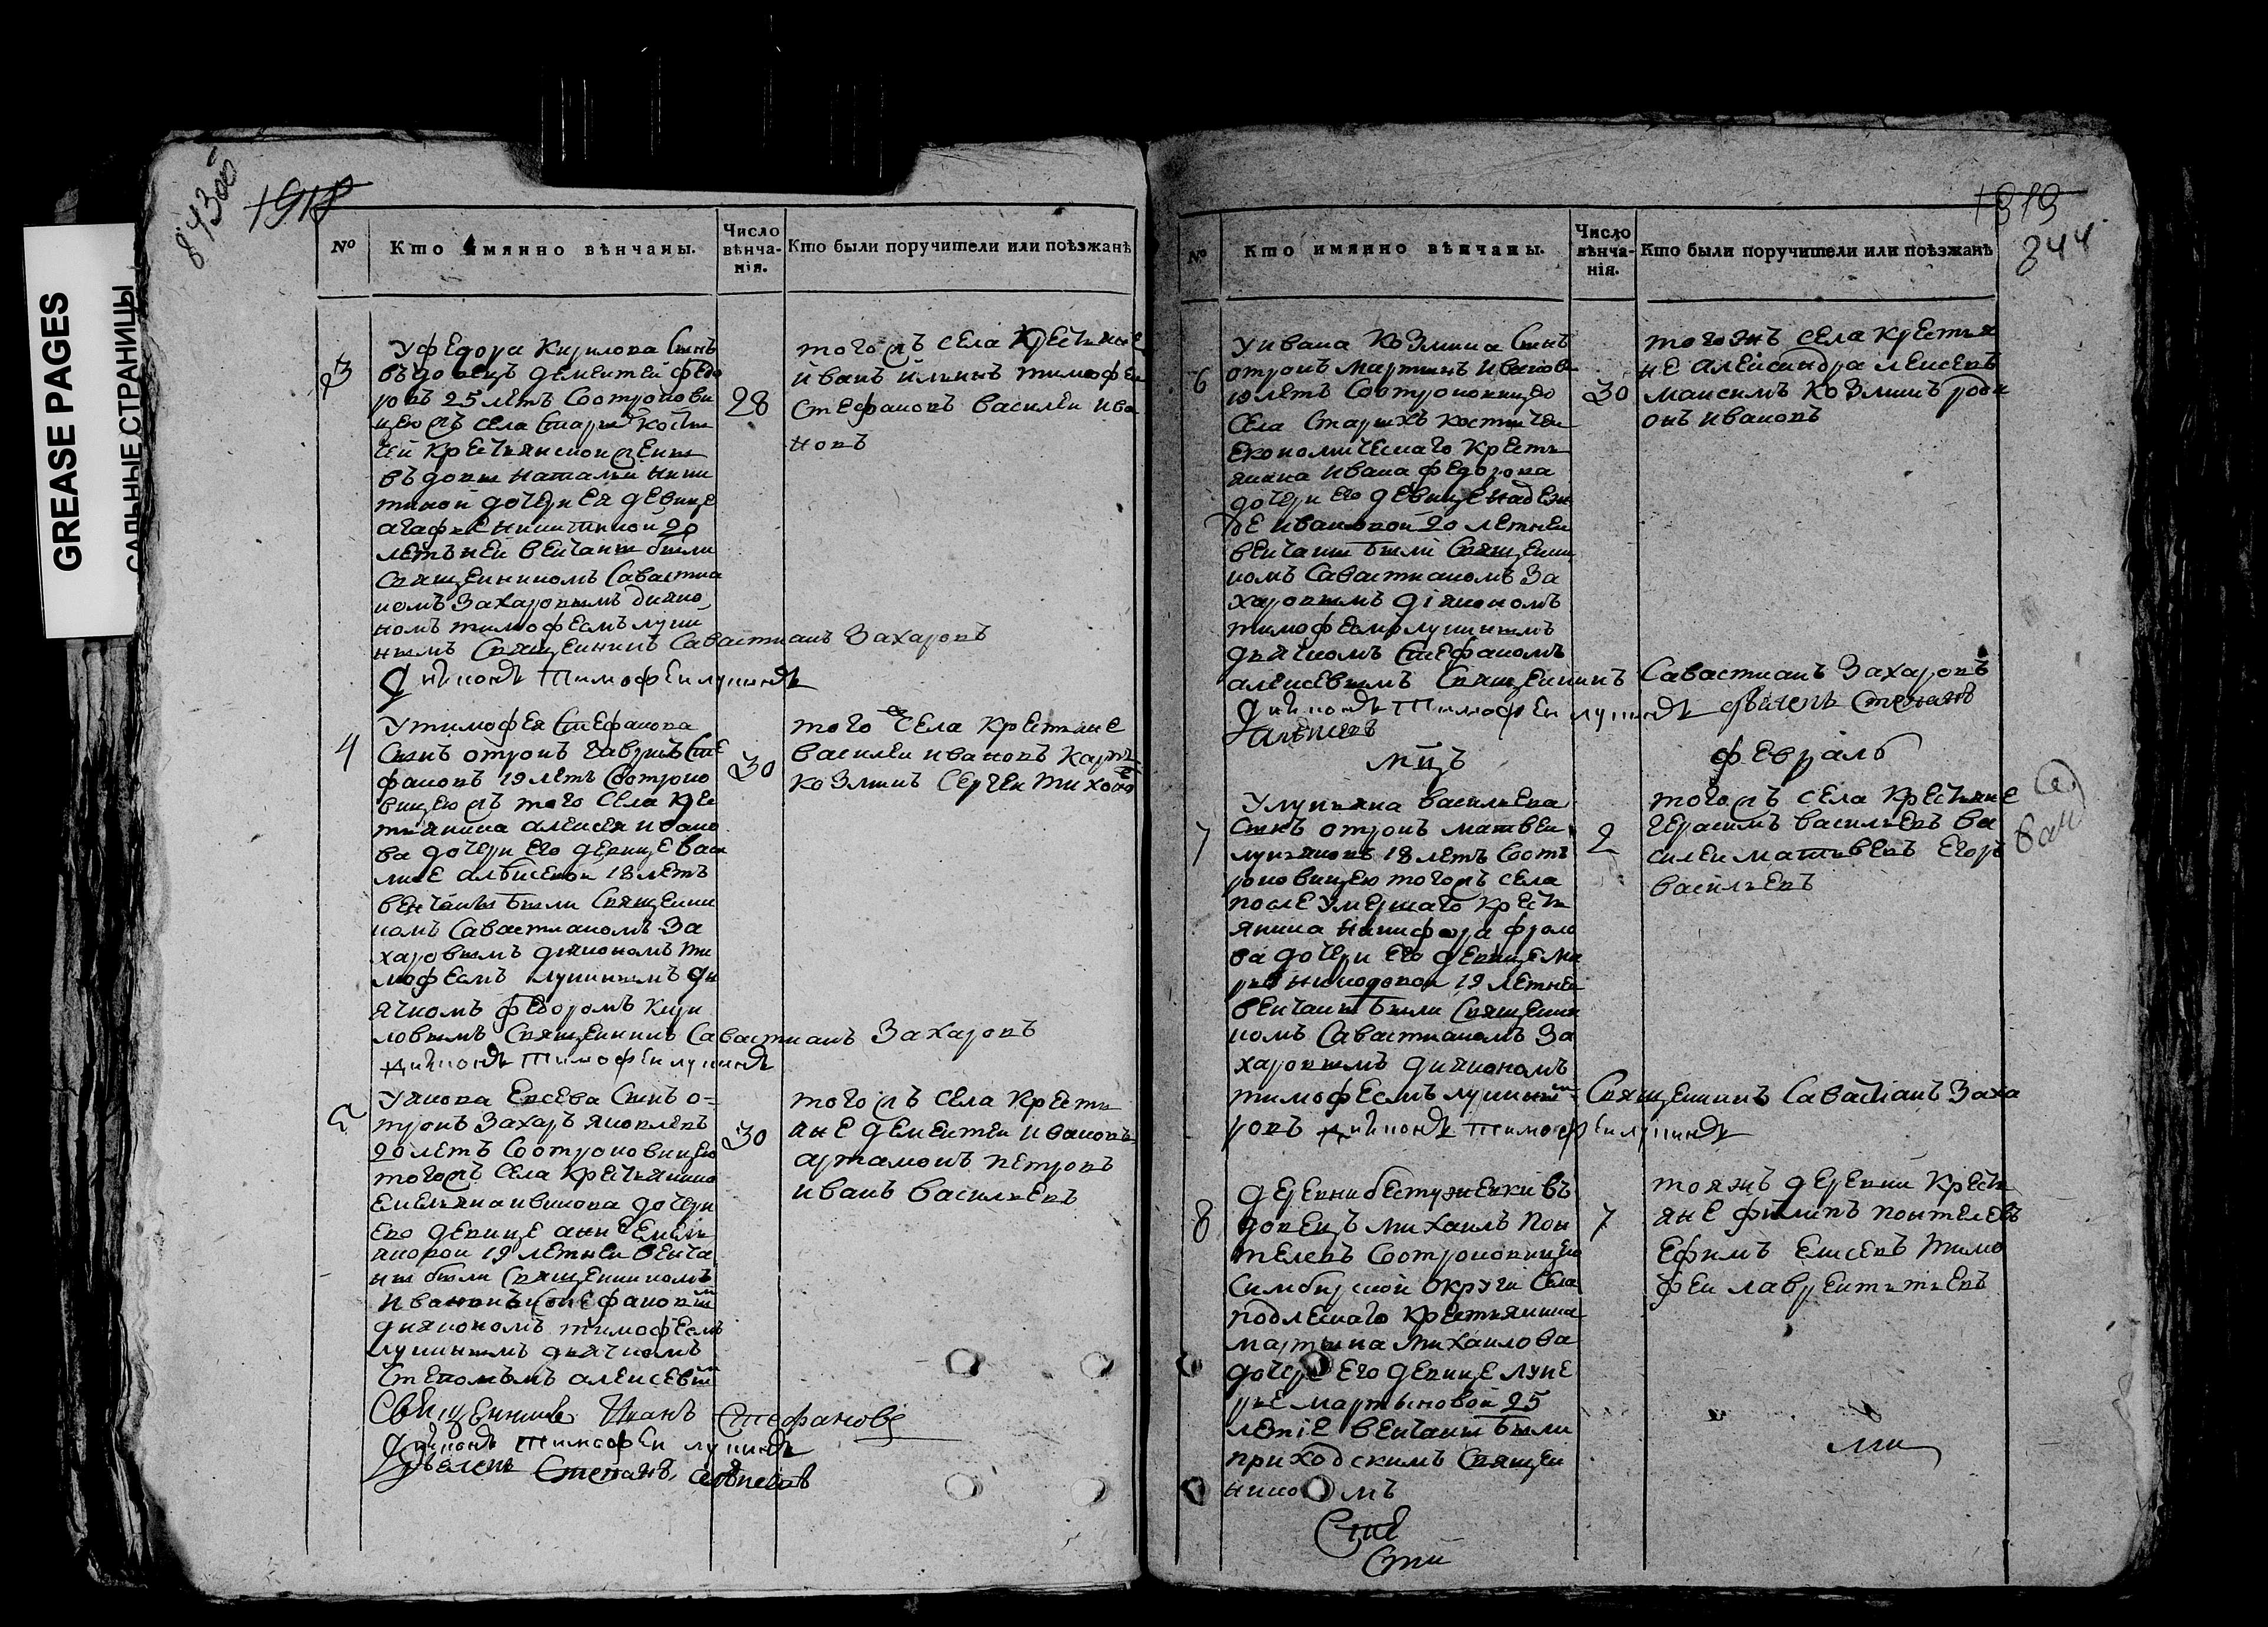 GREASE PAGES
САЛЬНЫЕ СТРАНИЦЫ
843об
1918
№
Кто имянно вѣнчаны.
Число вѣнчанія.
Кто были поручители или поѣзжанѣ
3
У федора Кирилова Сынъ
въдовецъ дементей федо
ровъ 25 летъ Соотрокови
цеюжъ села Старыхъ Косты
чей крестьянской женки
въдовы натальи ники
тиной дочерИ ея девице
агафье никитиной 20
летъней венчаны были
Священникомъ Савастиа
номъ Захаровымъ дияко
номъ тимофеемъ лупи
нымъ Священникъ Савастианъ Захаровъ
Дияконъ Тимофеи лупинъ
28
тогожъ села крестьяне
иванъ ильинъ тимофеи
стефановъ василеи ива
новъ
4
У тимофея Стефанова
Сынъ отрокъ гаврилъ Сте
фановъ 19 летъ Соотроко
вицеюжъ того села кре
тьянина алексея ивано
ва дочери его девице васи
лисе алексевои 18 летъ
венчаны были Священни
комъ Савастианомъ За
харовымъ дияконом ти
мофеемъ лупинымъ дь
ячкомъ федоромъ кири
ловымъ Священникъ Савастианъ Захаровъ
дияконъ Тимофеи лупинъ
30
того же села крестьяне
василеи ивановъ карпъ
козминъ сергеи тихоно
5
У якова Евсева Сынъ о-
трокъ Захаръ яковлевъ
20 летъ Соотроковицею
тогожъ села крестьянина
емельяна ивинова дочери
Его девице анне емель
яновои 19 летнеи венча
ны были Священникомъ
Иваномъ Стефановы
дияконом тимофеемъ
лупинымъ дьячкомъ
Степономъ алексевы
Священникъ Иванъ Стефановъ
Дияконъ Тимофеи лупинъ
Дьячекъ Степанъ алексѣевъ
30
тогожъ села кресть
яне дементеи ивановъ
артамонъ петровъ
иванъ васильевъ
1919
844
№
Кто имянно вѣнчаны.
Число вѣнчанія.
Кто были поручители или поѣзжанѣ
6
У ивана козмина Сынъ
отрокъ мартинъ иванов
летъ Соотроковицею
села Старыхъ костычеи
економическаго кресть
янина ивана федорова
дочери его девице надеж
де ивановой 20 летнеи
венчаны были Священни
комъ Савастианомъ За
харовымъ діякономъ
тимофеемъ лупинымъ
дьячкомъ Стефаномъ
алексевымъ Священникъ Савастианъ Захаровъ
Дияконъ Тимофеи лупинъ дьячекъ Степанъ
алексеевъ
30
тогожъ села крестья
не александра лексевъ
максимъ козминъ роди
онъ ивановъ
мцъ февраль
7
У лукьяна васильева
Сынъ отрокъ матвеи
лукьяновъ 18 летъ Соотъ
роковицею тогожъ села
после умершаго кресть
янина никифора фроло
ва дочери его девице ма
рье никифоровой 19 летнеи
венчаны были Священни
комъ Савастианомъ За
харовымъ дияконом
тимофеемъ лупины Священникъ Савастіанъ Заха
ровъ дияконъ Тимофеи лупинъ
2
тогожъ села крестьяне
герасимъ васильевъ ва
силеи матьвевъ Егоръ
васильевъ
8
деревни бестужевки въ
довецъ михаилъ пон
телевъ Соотроковицею
Симбирской округи села
подлеснаго крестьянина
мартына михаилова
дочери его девице луке
рье мартыновой 25
летіе венчаны были
приходскимъ Священ
никомъ
7
тояжъ деревни кресть
яне филипъ понтелевъ
Ефимъ Елисевъ тимо
феи лаврентьтьевъ